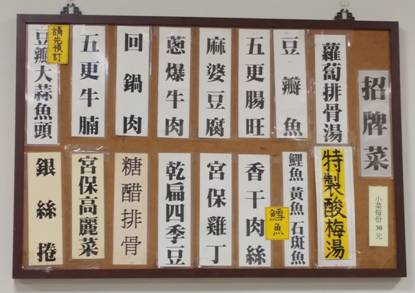 招牌菜
蘿蔔排骨湯
豆瓣魚
五更腸旺
麻婆豆腐
蔥爆牛肉
回鍋肉
五更牛腩
豆瓣大蒜魚頭
請先預訂
小菜每份30元
特製酸梅湯
鯉魚 黃魚 石斑魚
鱈魚
香干肉絲
宮保雞丁
乾扁四季豆
糖醋排骨
宮保高麗菜
銀絲捲